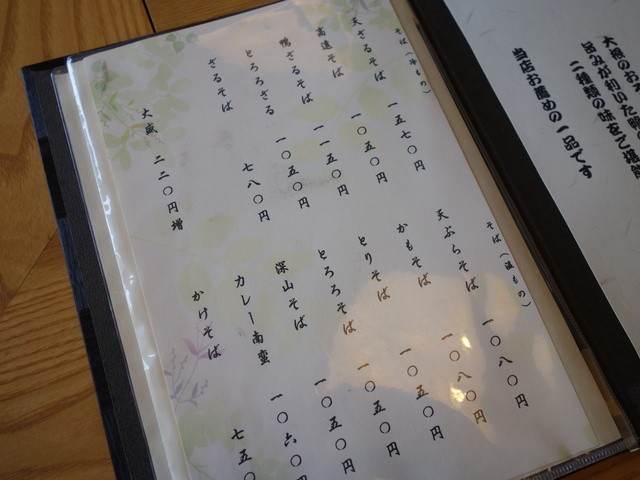 大根のおろ
旨みが利いた
二種類の味をご堪能
当店お薦めの一品です
そば(冷もの)
天ざるそば 一五七〇円
高遠そば 一〇五〇円
鴨ざるそば 一一五〇円
とろろざる 一〇五〇円
ざるそば 七八〇円
大盛 二二〇円増
そば(温もの)
天ぷらそば 一〇八〇円
かもそば 一〇八〇円
とりそば 一〇五〇円
とろろそば 一〇五〇円
深山そば 一〇五〇円
カレー南蛮 一〇六〇円
かけそば 七五〇